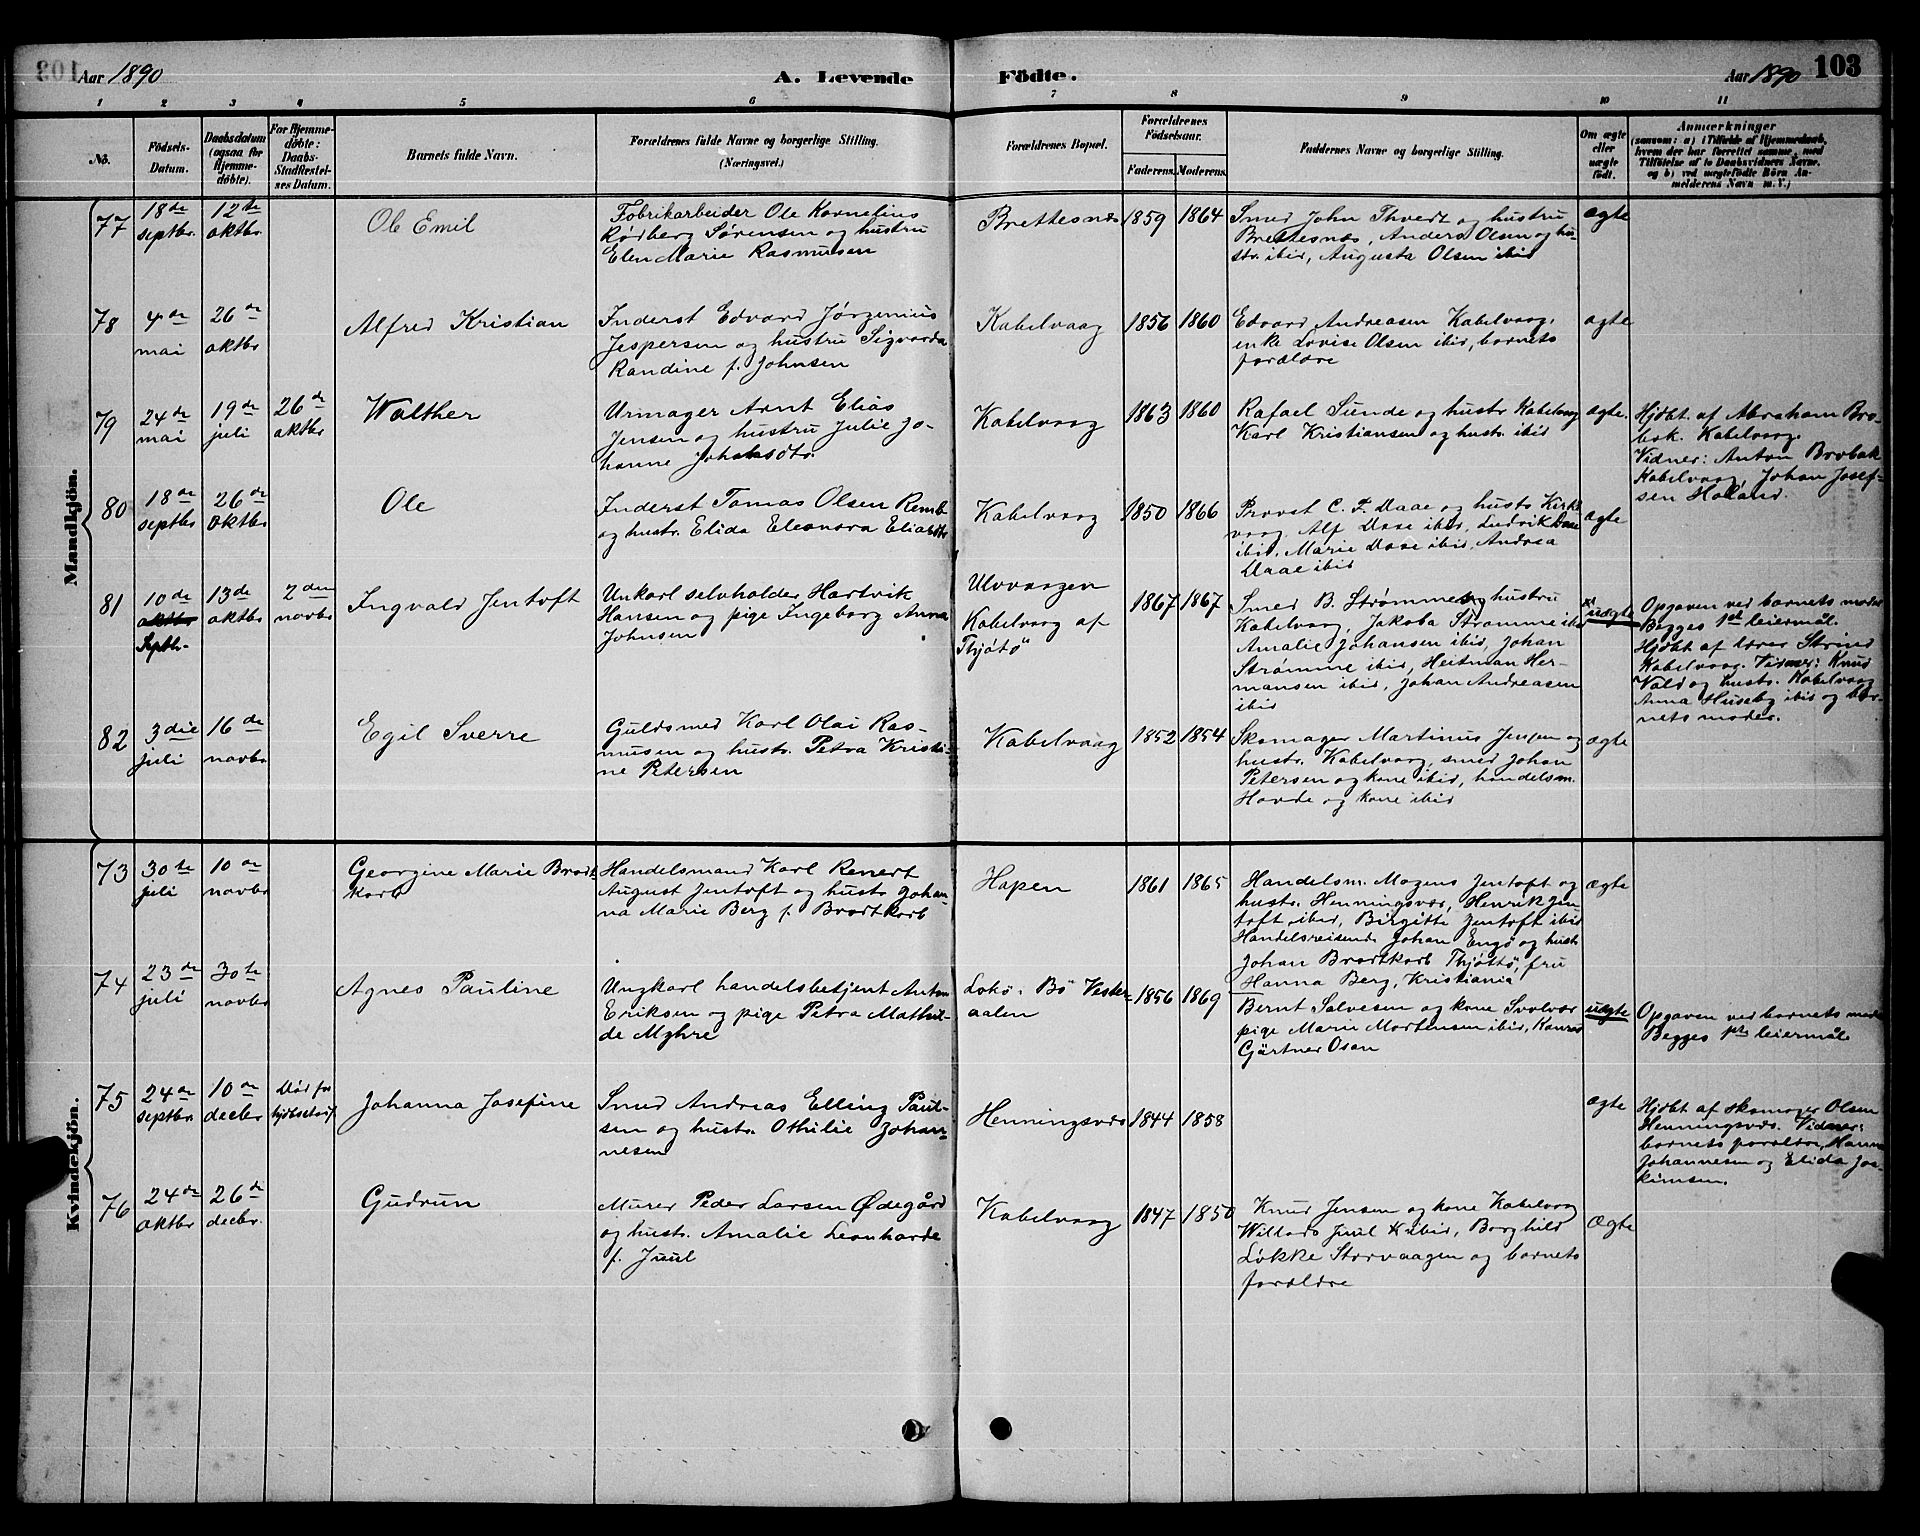 Aar 1890
A. Levende
Födte.
Aar 1890
103
1 2 3 4 5 6 7 8 9 10 11
No.
Födsels-
Datum.
Daabsdatum
(ogsaa for
Hjemme-
döbte).
For Hjemme-
döbte:
Daabs-
Stadfæstel-
ses Datum.
Barnets fulde Navn.
Forældrenes fulde Navne og borgerlige Stilling.
(Næringsvei.)
Forældrenes Bopæl.
Forældrenes
Födselsaar.
Faderens.
Moderens.
Faddernes Navne og borgerlige Stilling.
Om ægte
eller
uægte
födt.
Anmærkninger
(saasom: a) i Tilfælde af Hjemmedaab,
hvem der har forrettet samme, med
Tilföielse af to Daabsvidners Navne,
og b) ved uægtefödte Börn An-
melderens Navn m. V.)
Mandkjön.
77
18de
septbr.
12te
oktbr.
Ole Emil
Fabrikarbeider Ole Kornelius
Rødberg Sørensen og hustru
Elen Marie Rasmusen
Brettesnæs
1859
1864
Smed John Thvedt og hustru
Brettesnæs, Anders Olsen og hu-
str. ibid, Augusta Olsen ibid
ægte
78
4de
mai
26de
oktbr
Alfred Kristian
Inderst Edvard Jørgenius
Jespersen og hustru Sigvarda
Randine f. Johnsen
Kabelvaag
1856
1860
Edvard Andreasen Kabelvaag,
enke Lovise Olsen ibid, barnets
forældre
ægte
79
24de
mai
19de
juli
26de
oktbr
Walther
Urmager Arnt Elias
Jensen og hustru Julie Jo-
hanne Johansdtr.
Kabelvaag
1863
1860
Rafael Sunde og hustr Kabelvaag
Karl Kristiansen og hustr. ibid
ægte.
Hjdbt. af Abraham Bro-
bak. Kabelvaag.
Vidner: Anton Brobak
Kabelvaag, Johan Josef-
sen Holand.
80
18de
septbr
26de
oktbr
Ole
Inderst Tomas Olsen Remb
og hustr. Elida Eleonora Eliasdtr
Kabelvaag
1850
1866
Provst C. F. Daae og hustr Kirke
vaag, Alf Daae ibid, Ludvik Daae
ibid, Marie Daae ibid, Andrea
Daae ibid
ægte
81
10de
oktbr
Septb.
13de
oktbr
2den
novbr
Ingvald Jentoft
Unkarl selvholder Hartvik
Hansen og pige Ingeborg Anna
Johnsen
Ulvvaagen
Kabelvaag af
Thjøtø
1867
1867
Smed B. Strømme og hustru
Kabelvaag, Jakoba Strømme ibid
Amalie Johansen ibid, Johan
Strømme ibid, Heitman Her-
mansen ibid, Johan Andreasen
ibid
uægte
Opgaven ved barnets moder
Begges 1ste leiermål.
Hjdbt af lærer Strind
Kabelvaag. Vidner: Knud
Vold og hustr. Kabelvaag
Anna Huseby ibid og bar-
nets moder.
82
3die
juli
16de
novbr
Egil Sverre
Guldsmed Karl Olai Ras-
musen og hustr. Petra Kristi-
ne Petersen
Kabelvaag
1852
1854
Skomager Martinus Jensen og
hustr. Kabelvaag, smed Johan
Petersen og kone ibid, handelsm.
Hovde og kone ibid
ægte
Kvindekjön.
73
30te
juli
10de
novbr
Georgine Marie Brodt
korb
Handelsmand Karl Renert
August Jentoft og hustr Johan-
na Marie Berg f. Brodtkorb
Hopen
1861
1865
Handelsm. Mogens Jentoft og
hustr. Henningsvær, Henrik Jen
toft ibid, Birgitte Jentoft ibid
Handelsreisende Johan Engø og hustr
Johan Brodtkorb Thjøttø, fru
Hanna Berg, Kristiania
ægte
74
23de
juli
30te
novbr
Agnes Pauline
Ungkarl handelsbetjent Anton
Eriksen og pige Petra Mathil-
de Myhre
Lokø. Bø Vester-
aalen
1856
1869
Bernt Salvesen og kone Svolvær
pige Marie Mortensen ibid, Konrad
Gärtner Osan
uægte
Opgaven ved barnets moder
Begges 1ste leiermål
75
24de
septbr
10de
decbr
Død før
hjdbstadf.
Johanna Josefine
Smed Andreas Elling Paul-
sen og hustr. Othilie Johan-
nesen
Henningsvær
1844
1858
ægte
Hjdbt af skomager Olsen
Henningsvær. Vidner:
barnets forældre, Hanna
Johannesen og Elida Joa-
kimsen.
76
24de
oktbr
26de
decbr.
Gudrun
Murer Peder Larsen Ødegård
og hustr. Amalie Leonharde
f. Juul
Kabelvaag
1847
1850
Knud Jensen og kone Kabelvaag
Willads Juul ibid, Borghild
Løkke Storvaagen og barnets
forældre
ægte